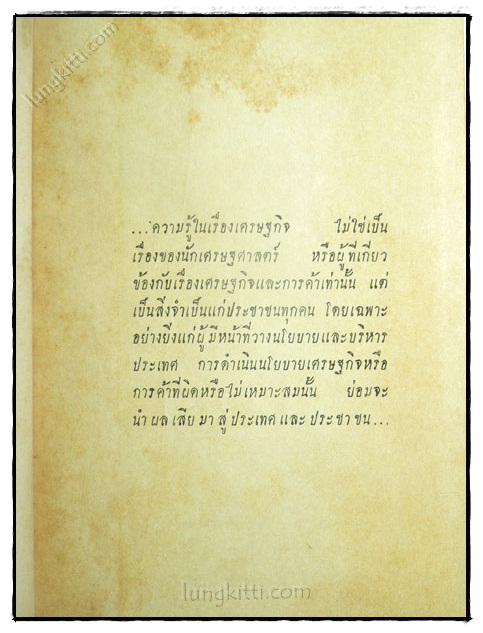 lungkitti.com
...ความรู้ในเรื่องเศรษฐกิจ ไม่ใช่เป็น
เรื่องของนักเศรษฐศาสตร์ หรือผู้ที่เกี่ยว
ข้องกับเรื่องเศรษฐกิจและการค้าเท่านั้น แต่
เป็นสิ่งจำเป็นแก่ประชาชนทุกคน โดยเฉพาะ
อย่างยิ่งแก่ผู้มีหน้าที่วางนโยบายและบริหาร
ประเทศ การดำเนินนโยบายเศรษฐกิจหรือ
การค้าที่ผิดหรือไม่เหมาะสมนั้น ย่อมจะ
นำผลเสียมาสู่ประเทศและประชาชน...
lungkitti.com